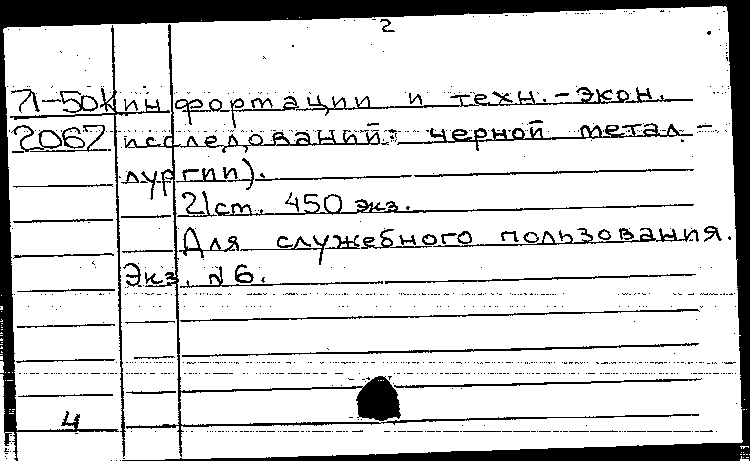 2
71-50К информации и техн.-экон.
2067 исследований черной метал-
лургии).
21 см. 450 экз.
Для служебного пользования.
Экз. №6.
4